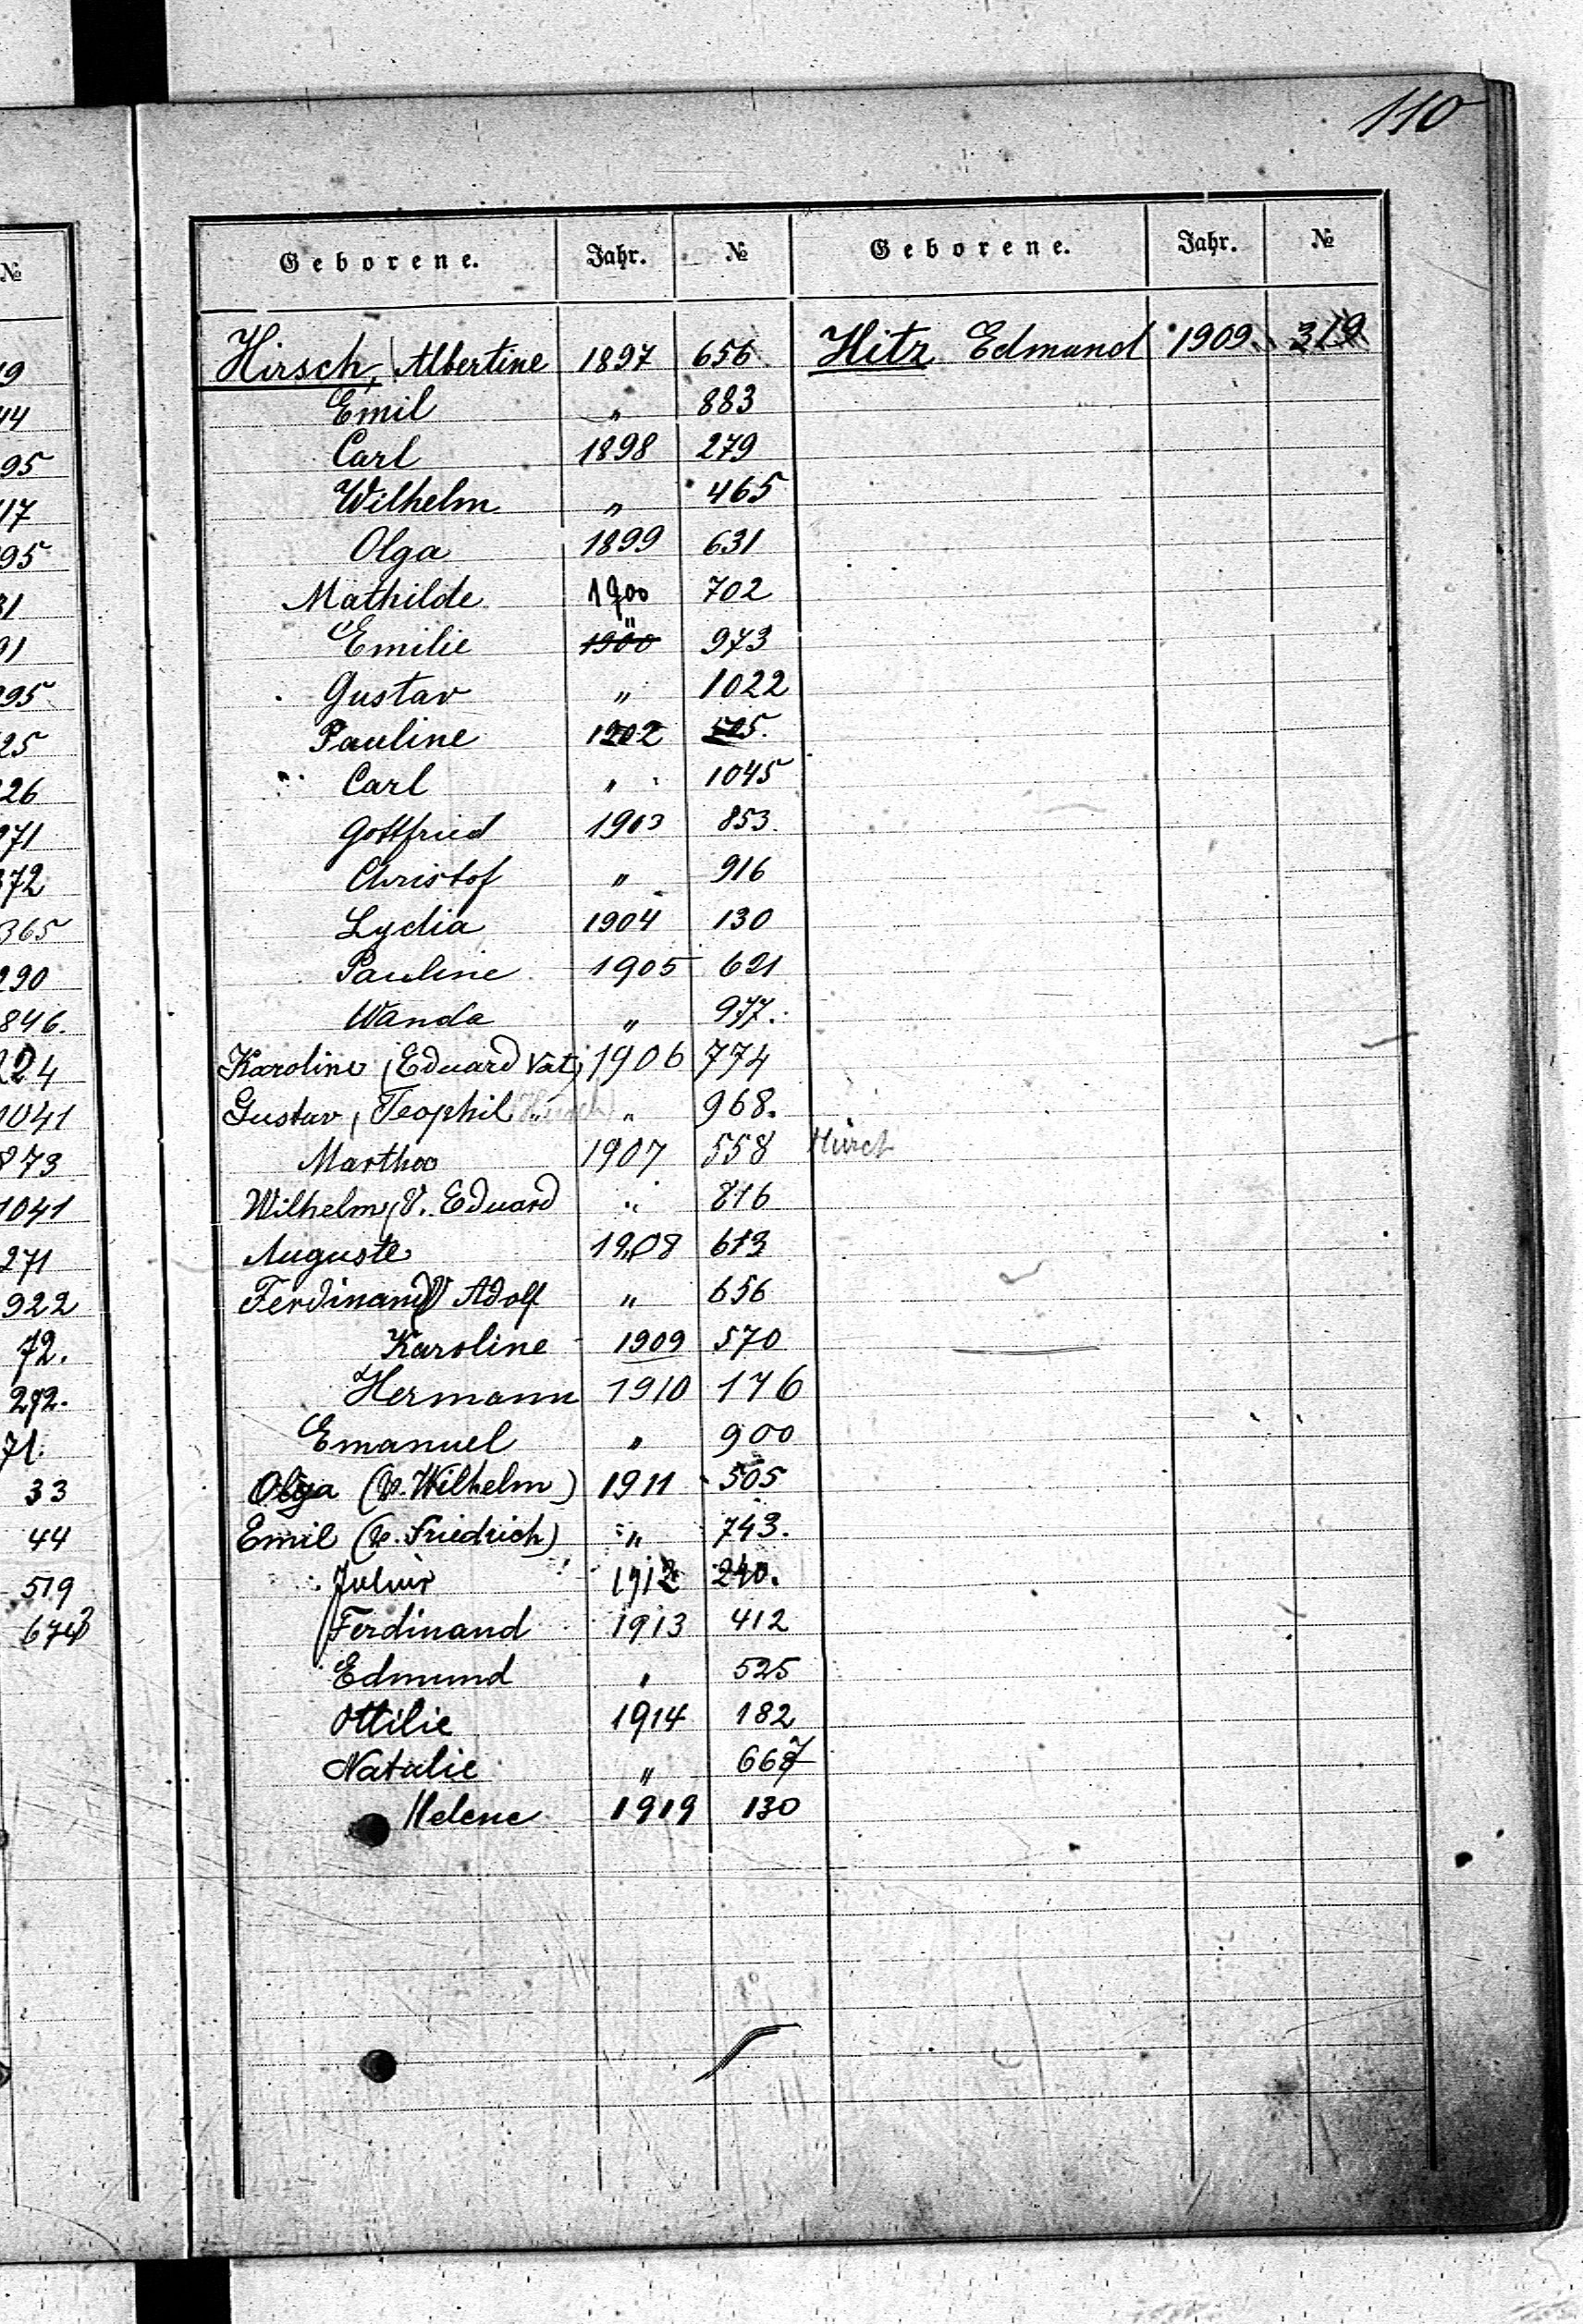 110
№
19
44
95
17
95
31
91
95
25
26
971
372
365
290
846.
224
1041
873
1041
271
922
72.
292.
71.
33
44
519
Geborene. Jahr. № Geborene. Jahr. №
Hirsch, Albertine 1897 656 Hitz Edmund 1909. 319
Emil " 883
Carl 1898 279
Wilhelm " 465
Olga 1899 631
Mathilde 1900 702
Emilie 1900 " 973
Gustav " 1022
Pauline 1902
Carl " 1045
Gottfried 1903 853.
Christof " 916
Lydia 1904 130
Pauline 1905 621
Wanda " 977.
Karoline (Eduard Vat) 1906 774
Gustav, Teophil " " 968.
Martha 1907 558 Hirch
Wilhelm, V. Eduard " 816
Auguste 1908 613
Ferdinand V Adolf " 656
Karoline 1909 570
Hermann 1910 176
Emanuel " 900
Olga (V. Wilhelm) 1911 505
Emil (V. Friedrich) " 743.
Julius 1912 240.
Ferdinand 1913 412
Edmund " 525
Ottilie 1914 182
Natalie " 667
Helene 1919 130